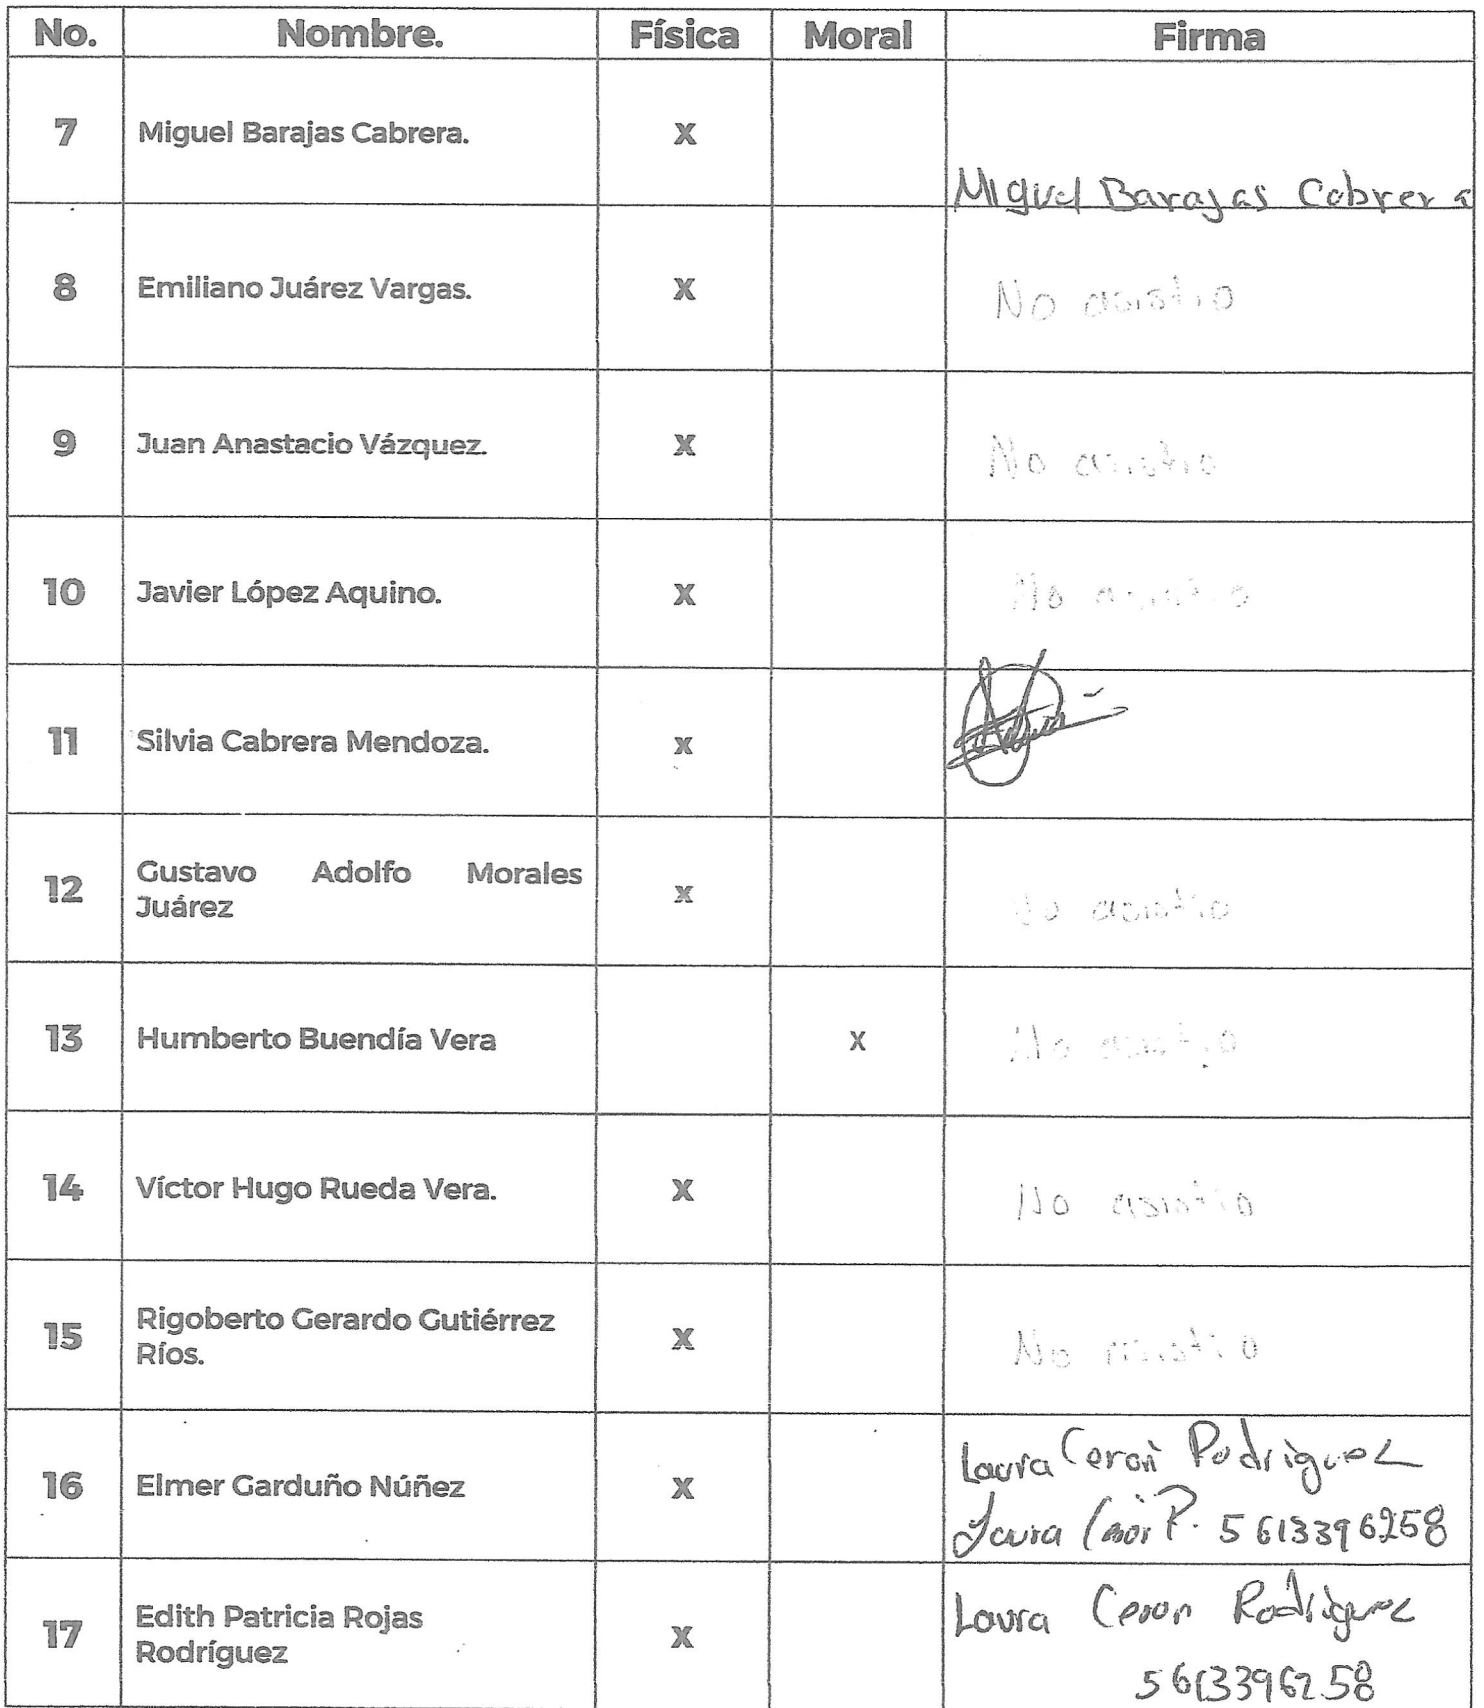 No. Nombre. Física Moral Firma
7 Miguel Barajas Cabrera. X
Miguel Barajas Cabrera
8 Emiliano Juárez Vargas. X No asistio
9 Juan Anastacio Vázquez. X No asistio
10 Javier López Aquino. X No asistio
11 Silvia Cabrera Mendoza. X
Gustavo Adolfo Morales
12 X No asistio
Juárez
13 Humberto Buendía Vera X No asistio
14 Víctor Hugo Rueda Vera. X No asistio
Rigoberto Gerardo Gutiérrez
15 X No asistio
Ríos.
Laura Ceron Rodriguez
16 Elmer Garduño Núñez X
Laura P. 5613396258
Edith Patricia Rojas Laura Ceron Rodriguez
17 X
Rodríguez
5613396258